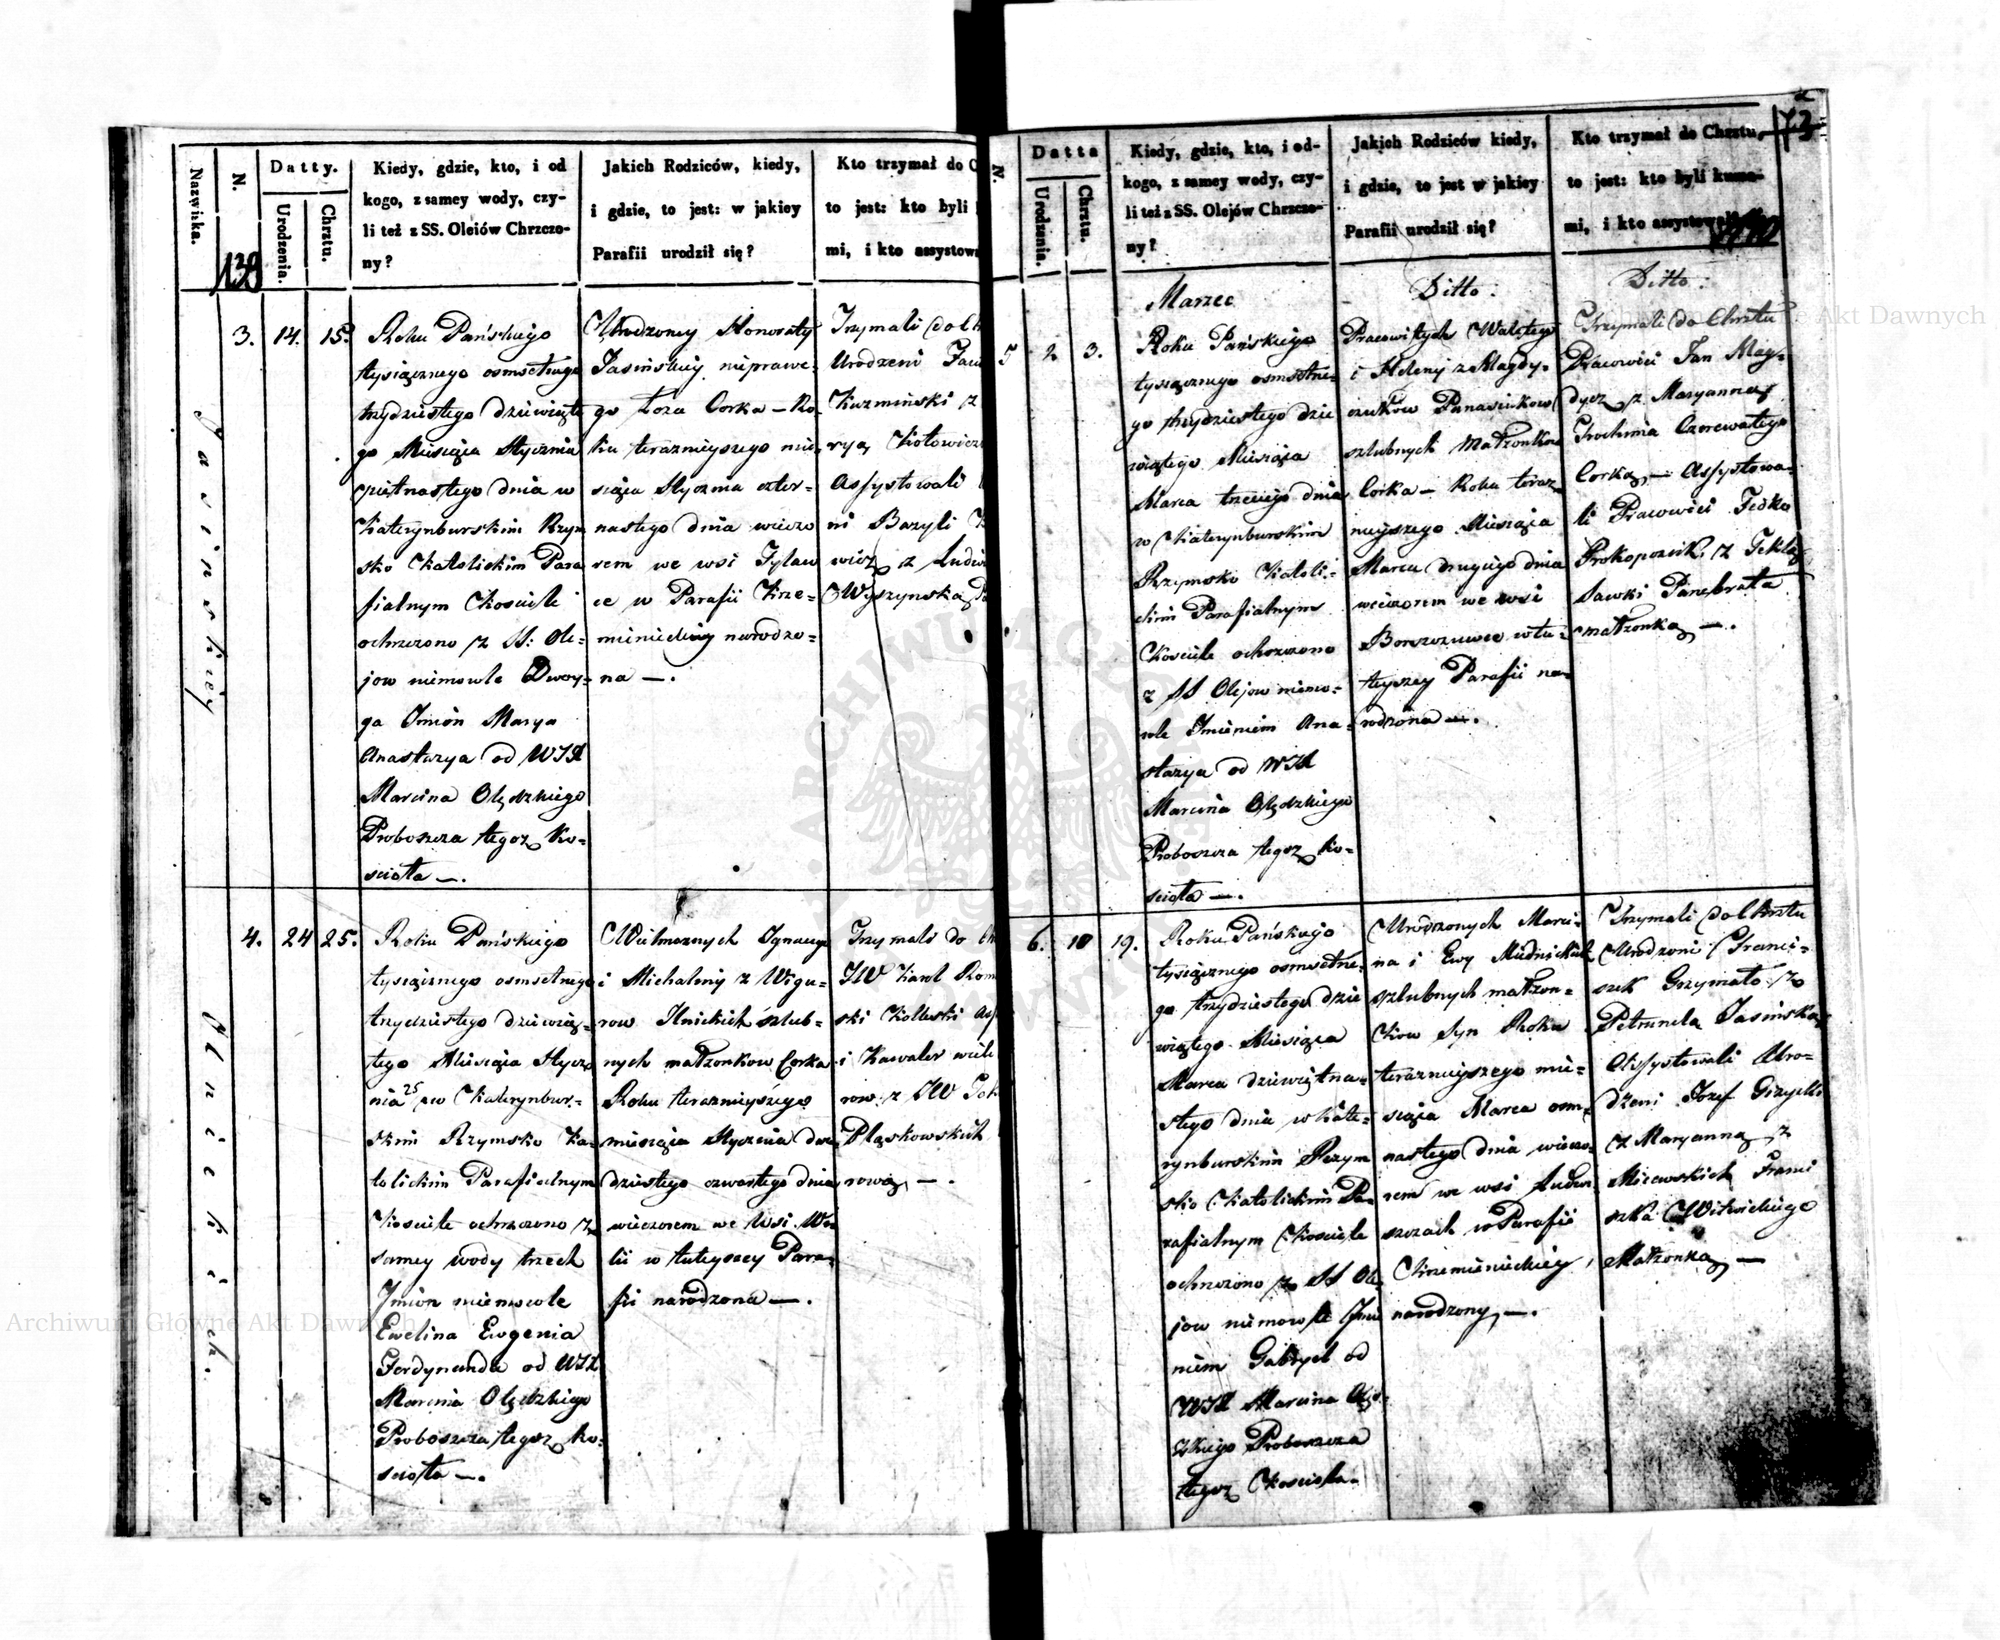 Nazwiska.
N.
139
Datty.
Urodzenia.
Chrztu.
Kiedy, gdzie, kto, i od
kogo, z samey wody, czy-
li też z SS. Oleiów Chrzczo-
ny?
Jakich Rodziców, kiedy,
i gdzie, to jest: w jakiey
Parafii urodził się?
Kto trzymał do C
to jest: kto byli
mi, i kto assystowa
Jasinskiey
3.
14.
15.
Roku Pańskiego
tysiącznego osmsetnego
trzydziestego dziewiąte
go Miesiąca Stycznia
piętnastego dnia w
Katerynburskim Rzym
sko Katolickim Para
fialnym Kościele
ochrzczono z SS: Ole-
jow niemowle Dwoy-
ga Imion Marya
Anastazya od WJX
Marcina Olędzkiego
Proboszcza tegoż Ko-
scioła —.
Urodzoney Honoraty
Jasińskiey nieprawe-
go Łoża Corka — Ro-
ku teraznieyszego mie-
siąca Stycznia czter-
nastego dnia wieczo
rem we wsi Tylaw
ce w Parafii Krze-
mienieckiey narodzo-
na —.
Trzymali do Ch
Urodzeni
Kuzminski z
ryą Kotowicz
Assystowali
ni Bazyli
wicz z Ludwi
Wyszynską
Ilnickich.
4.
24
25.
Roku Pańskiego
tysiącznego osmsetnego
trzydziestego dziewią-
tego Miesiąca Stycz
nia 25 we Katerynbur-
skim Rzymsko Ka-
tolickim Parafialnym
Kościele ochrzczono z
samey wody trzech
Imion niemowle
Ewelina Eugenia
Ferdynanda od WJX
Marcina Olędzkiego
Proboszcza tegoż Ko-
scioła —.
Wielmożnych Ignacego
i Michaliny z Wigu-
row Ilnickich szlub-
nych małżonkow Corka
Roku teraznieyszego
miesiąca Stycznia dwu
dziestego czwartego dnia
wieczorem we Wsi
lii w tuteyszey Para-
fii narodzona —.
Trzymali do Ch
JW Karol Rom
ski Kolleski Ass
i Kawaler wiel
row z JW Tek
Pląskowskich
rową —.
N.
Datta
Urodzenia.
Chrztu.
Kiedy, gdzie, kto, i od-
kogo, z samey wody, czy-
li też z SS. Olejów Chrzczo-
ny?
Jakich Rodziców kiedy,
i gdzie, to jest w jakiey
Parafii urodził się?
Kto trzymał do Chrztu,
to jest: kto byli kuma-
mi, i kto assystował
73
Marzec
Ditto.
Ditto.
5
2
3.
Roku Pańskiego
tysiącznego osmsetne-
go trzydziestego dzie
wiątego Miesiąca
Marca trzeciego dnia
w Katerynburskim
Rzymsko Katoli-
ckim Parafialnym
Kościele ochrzczono
z SS Olejow niemo-
wle Imieniem Ana-
stazya od WJX
Marcina Olędzkiego
Proboszcza tegoż Ko-
scioła —.
Pracowitych Walętego
i Heleny z Magdy-
czukow Panasiukow
szlubnych Małżonkow
Corka — Roku teraz-
nieyszego Miesiąca
Marca drugiego dnia
wieczorem we wsi
Borszczuwce w tu-
teyszey Parafii na-
rodzona —.
Trzymali do Chrztu
Pracowici Jan Mag-
dycz z Maryanną
Trochima Czerewatego
Corką — Assystowa-
li Pracowici Fedko
Prokopczuk z Teklą
Sawki Panebrata
małżonką —.
6.
18
19.
Roku Pańskiego
tysiącznego osmsetne-
go trzydziestego dzie
wiątego Miesiąca
Marca dziewiętna-
stego dnia w Kate-
rynburskim Rzym
sko Katolickim Pa-
rafialnym Kościele
ochrzczono z SS Ole
jow niemowle Imie
niem Gabryel od
WJX Marcina Olę-
dzkiego Proboszcza
tegoż Kościoła.
Urodzonych Marci-
na i Ewy Mudnickich
szlubnych małżon-
kow Syn Roku
terazniejszego mie-
siąca Marca osm-
nastego dnia wieczo-
rem we wsi
szczach w Parafii
Krzemienieckiey
narodzony —.
Trzymali do Chrztu
Urodzoni Franci-
szek Grzymało z
Petrunelą Jasinską
Assystowali Uro-
dzeni Jozef Gizycki
z Maryanną z
Micewskich Franci
szka Witwickiego
Małżonką —
Archiwum Główne Akt Dawnych